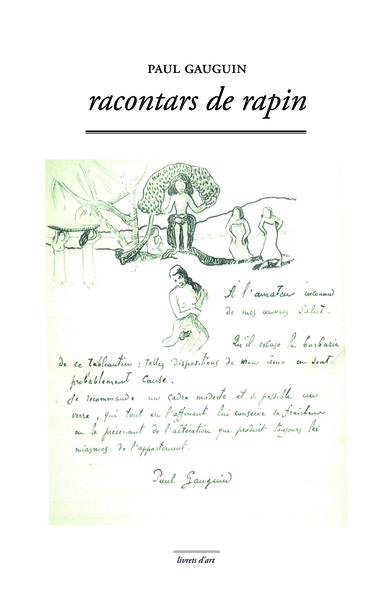 PAUL GAUGUIN
racontars de rapin
A l'amateur inconnu
de mes œuvres Salut.
Qu'il excuse la barbarie
de ce tableautin ; telles dispositions de mon âme en sont
probablement cause.
Je recommande un cadre modeste et si possible un
verre, qui tout en l'affinant lui conserve sa fraîcheur
en le préservant de l'altération que produit toujours les
miasmes de l'appartement.
Paul Gauguin
livrets d'art